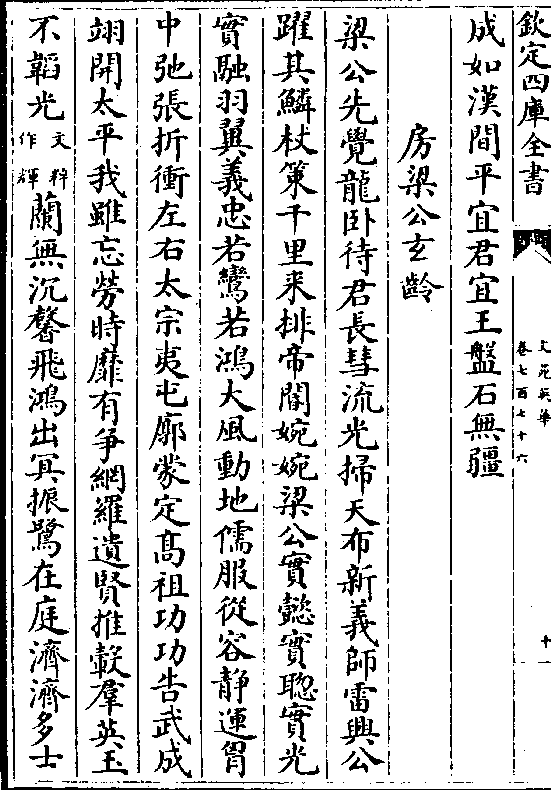 欽定四庫全書
文苑英華
卷七百七十六
十一
成如漢間平宜君宜王盤石無疆
房梁公玄齡
梁公先覺龍卧待君長彗流光掃天布新義師雷興公
躍其鱗杖策千里来排帝閽婉婉梁公實懿實聰實光
實融羽翼義忠若鸞若鴻大風動地儒服從容静運胷
中弛張折衝左右太宗夷屯廓蒙定髙祖功功告武成
翊開太平我雖忘勞時靡有爭網羅遺賢推轂羣英玉
不韜光文粹作輝蘭無沉馨飛鴻出冥振鷺在庭濟濟多士